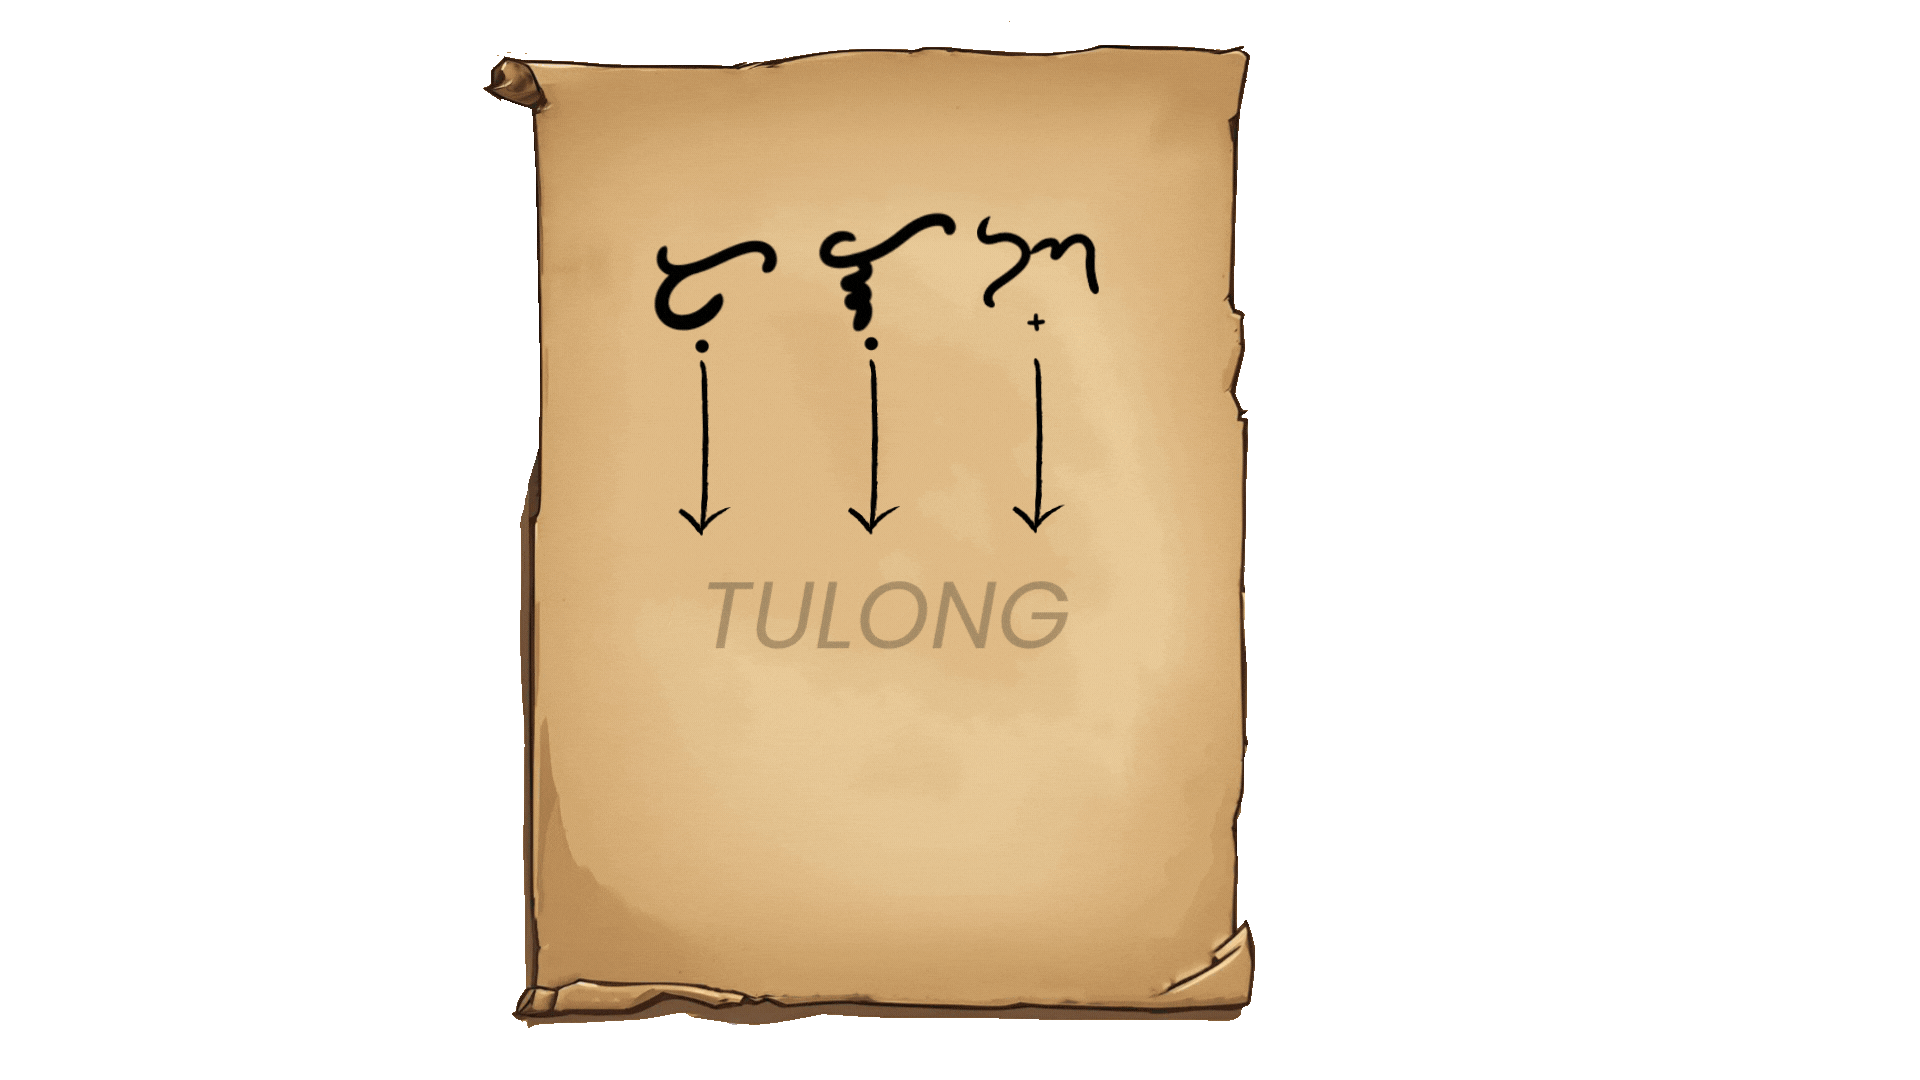 ᜆᜓᜎᜓᜅ᜔
TULONG